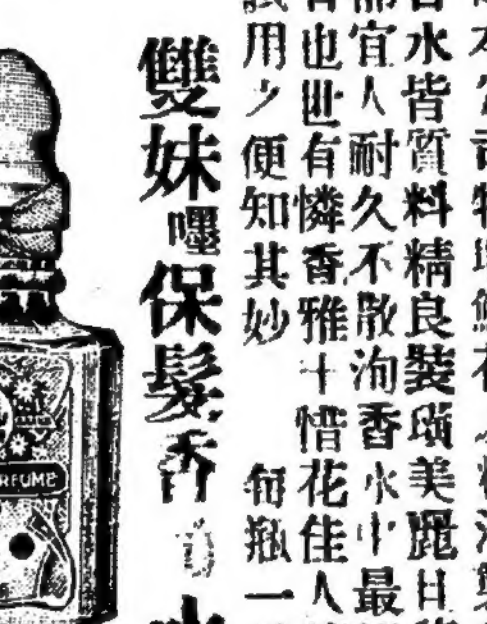 水皆質料精良裝璜美麗日
宜人耐久不散洵香水中最
也世有憐香雅士惜花佳人
用之便知其妙　每瓶一
雙妹嚜保髮香
RFUME